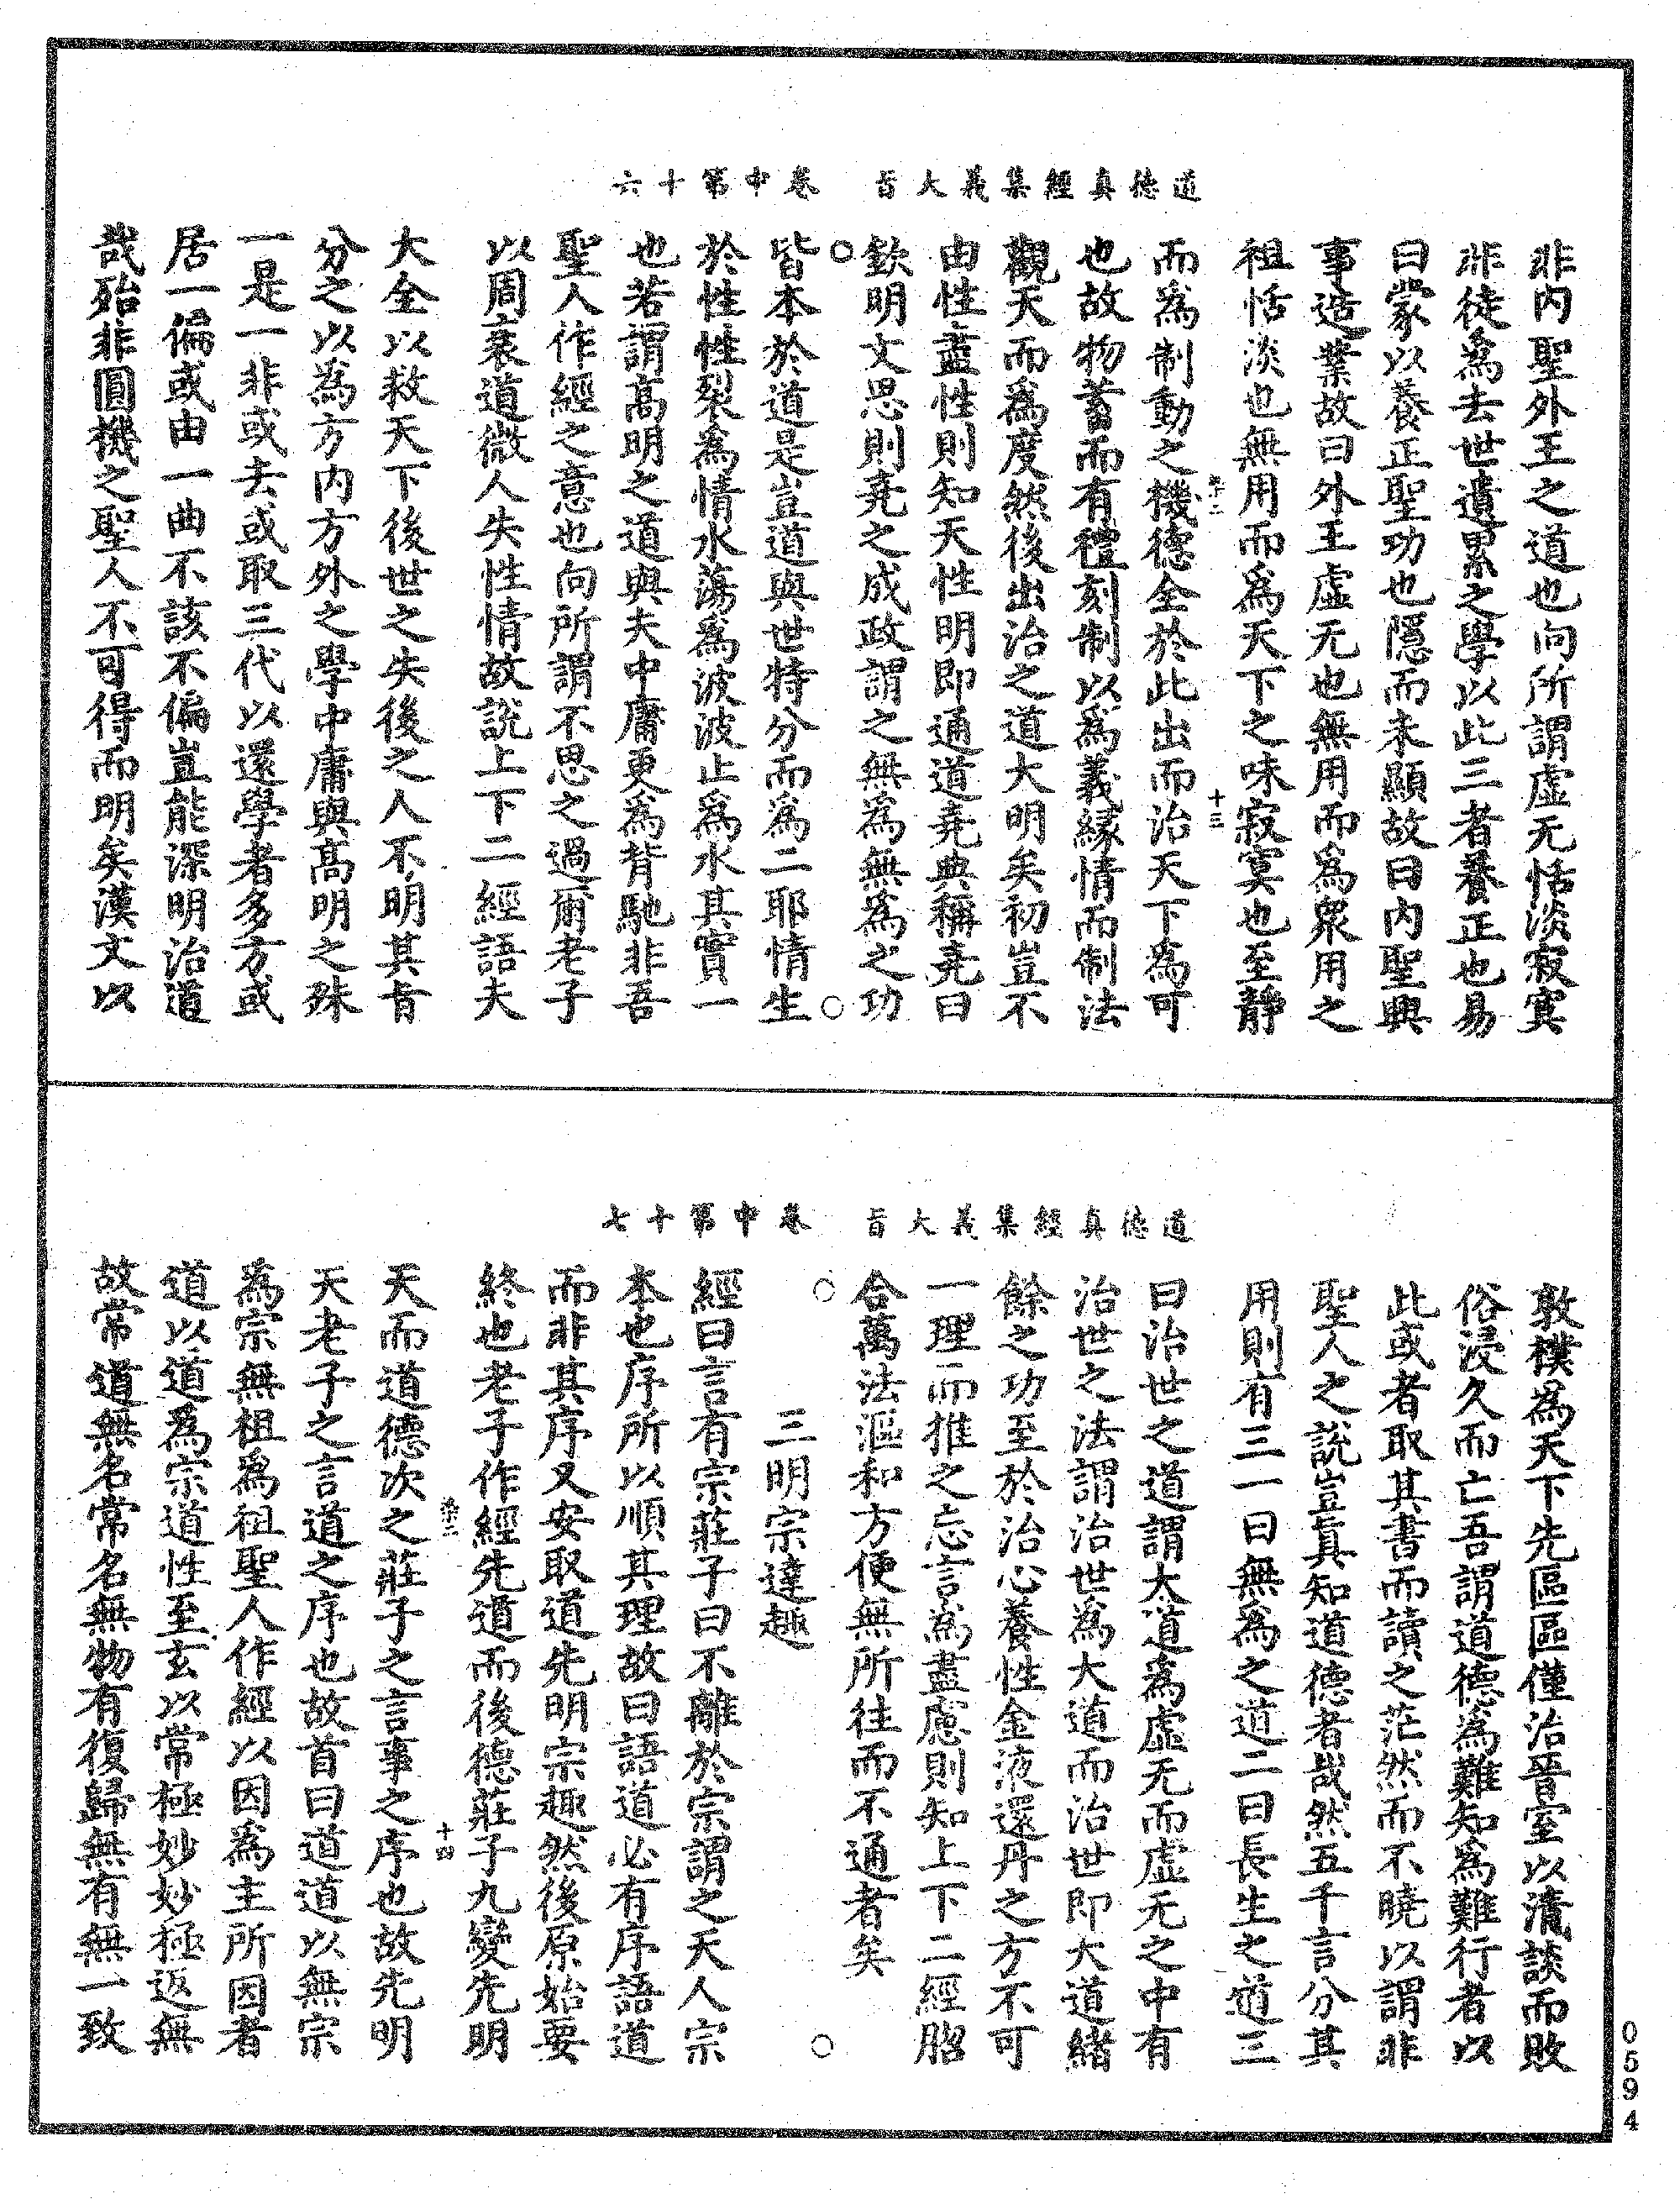 道德真經集義大旨　卷中第十六
非内聖外王之道也向所謂虚无恬淡寂寞
非徒為去世遺累之學以此三者養正也易
曰蒙以養正聖功也隱而未顯故曰内聖興
事造業故曰外王虚无也無用而為衆用之
祖恬淡也無用而為天下之味寂寞也至靜
十三
而為制動之機德全於此出而治天下為可
也故物蓄而有禮刻制以為義縁情而制法
觀天而為度然後出治之道大明矣初豈不
由性盡性則知天性明即通道堯典稱堯曰
欽明文思則堯之成政謂之無為無為之功
皆本於道是豈道與世特分而為二耶情生
於性性裂為情水蕩為波波止為水其實一
也若謂高明之道與夫中庸更為背馳非吾
聖人作經之意也向所謂不思之過爾老子
以周衰道微人失性情故説上下二經語夫
大全以救天下後世之失後之人不明其旨
分之以為方内方外之學中庸與高明之殊
一是一非或去或取三代以還學者多方或
居一偏或由一曲不該不偏豈能深明治道
哉殆非圓機之聖人不可得而明矣漢文以
道德真經集義大旨　卷中第十七
敦樸為天下先區區僅治晉室以清談而敗
俗浸久而亡吾謂道德為難知為難行者以
此或者取其書而讀之茫然而不曉以謂非
聖人之説豈真知道德者哉然五千言分其
用則有三一曰無為之道二曰長生之道三
曰治世之道謂大道為虚无而虚无之中有
治世之法謂治世為大道而治世即大道緒
餘之功至於治心養性金液還丹之方不可
一理而推之忘言為盡慮則知上下二經脗
合萬法漚和方便無所往而不通者矣
三明宗達趣
經曰言有宗莊子曰不離於宗謂之天人宗
本也序所以順其理故曰語道必有序語道
而非其序又安取道先明宗趣然後原始要
終也老子作經先道而後德莊子九變先明
十四
天而道德次之莊子之言事之序也故先明
天老子之言道之序也故首曰道道以無宗
為宗無祖為祖聖人作經以因為主所因者
道以道為宗道性至玄以常極妙妙極返無
故常道無名常名無物有復歸無有無一致
0594